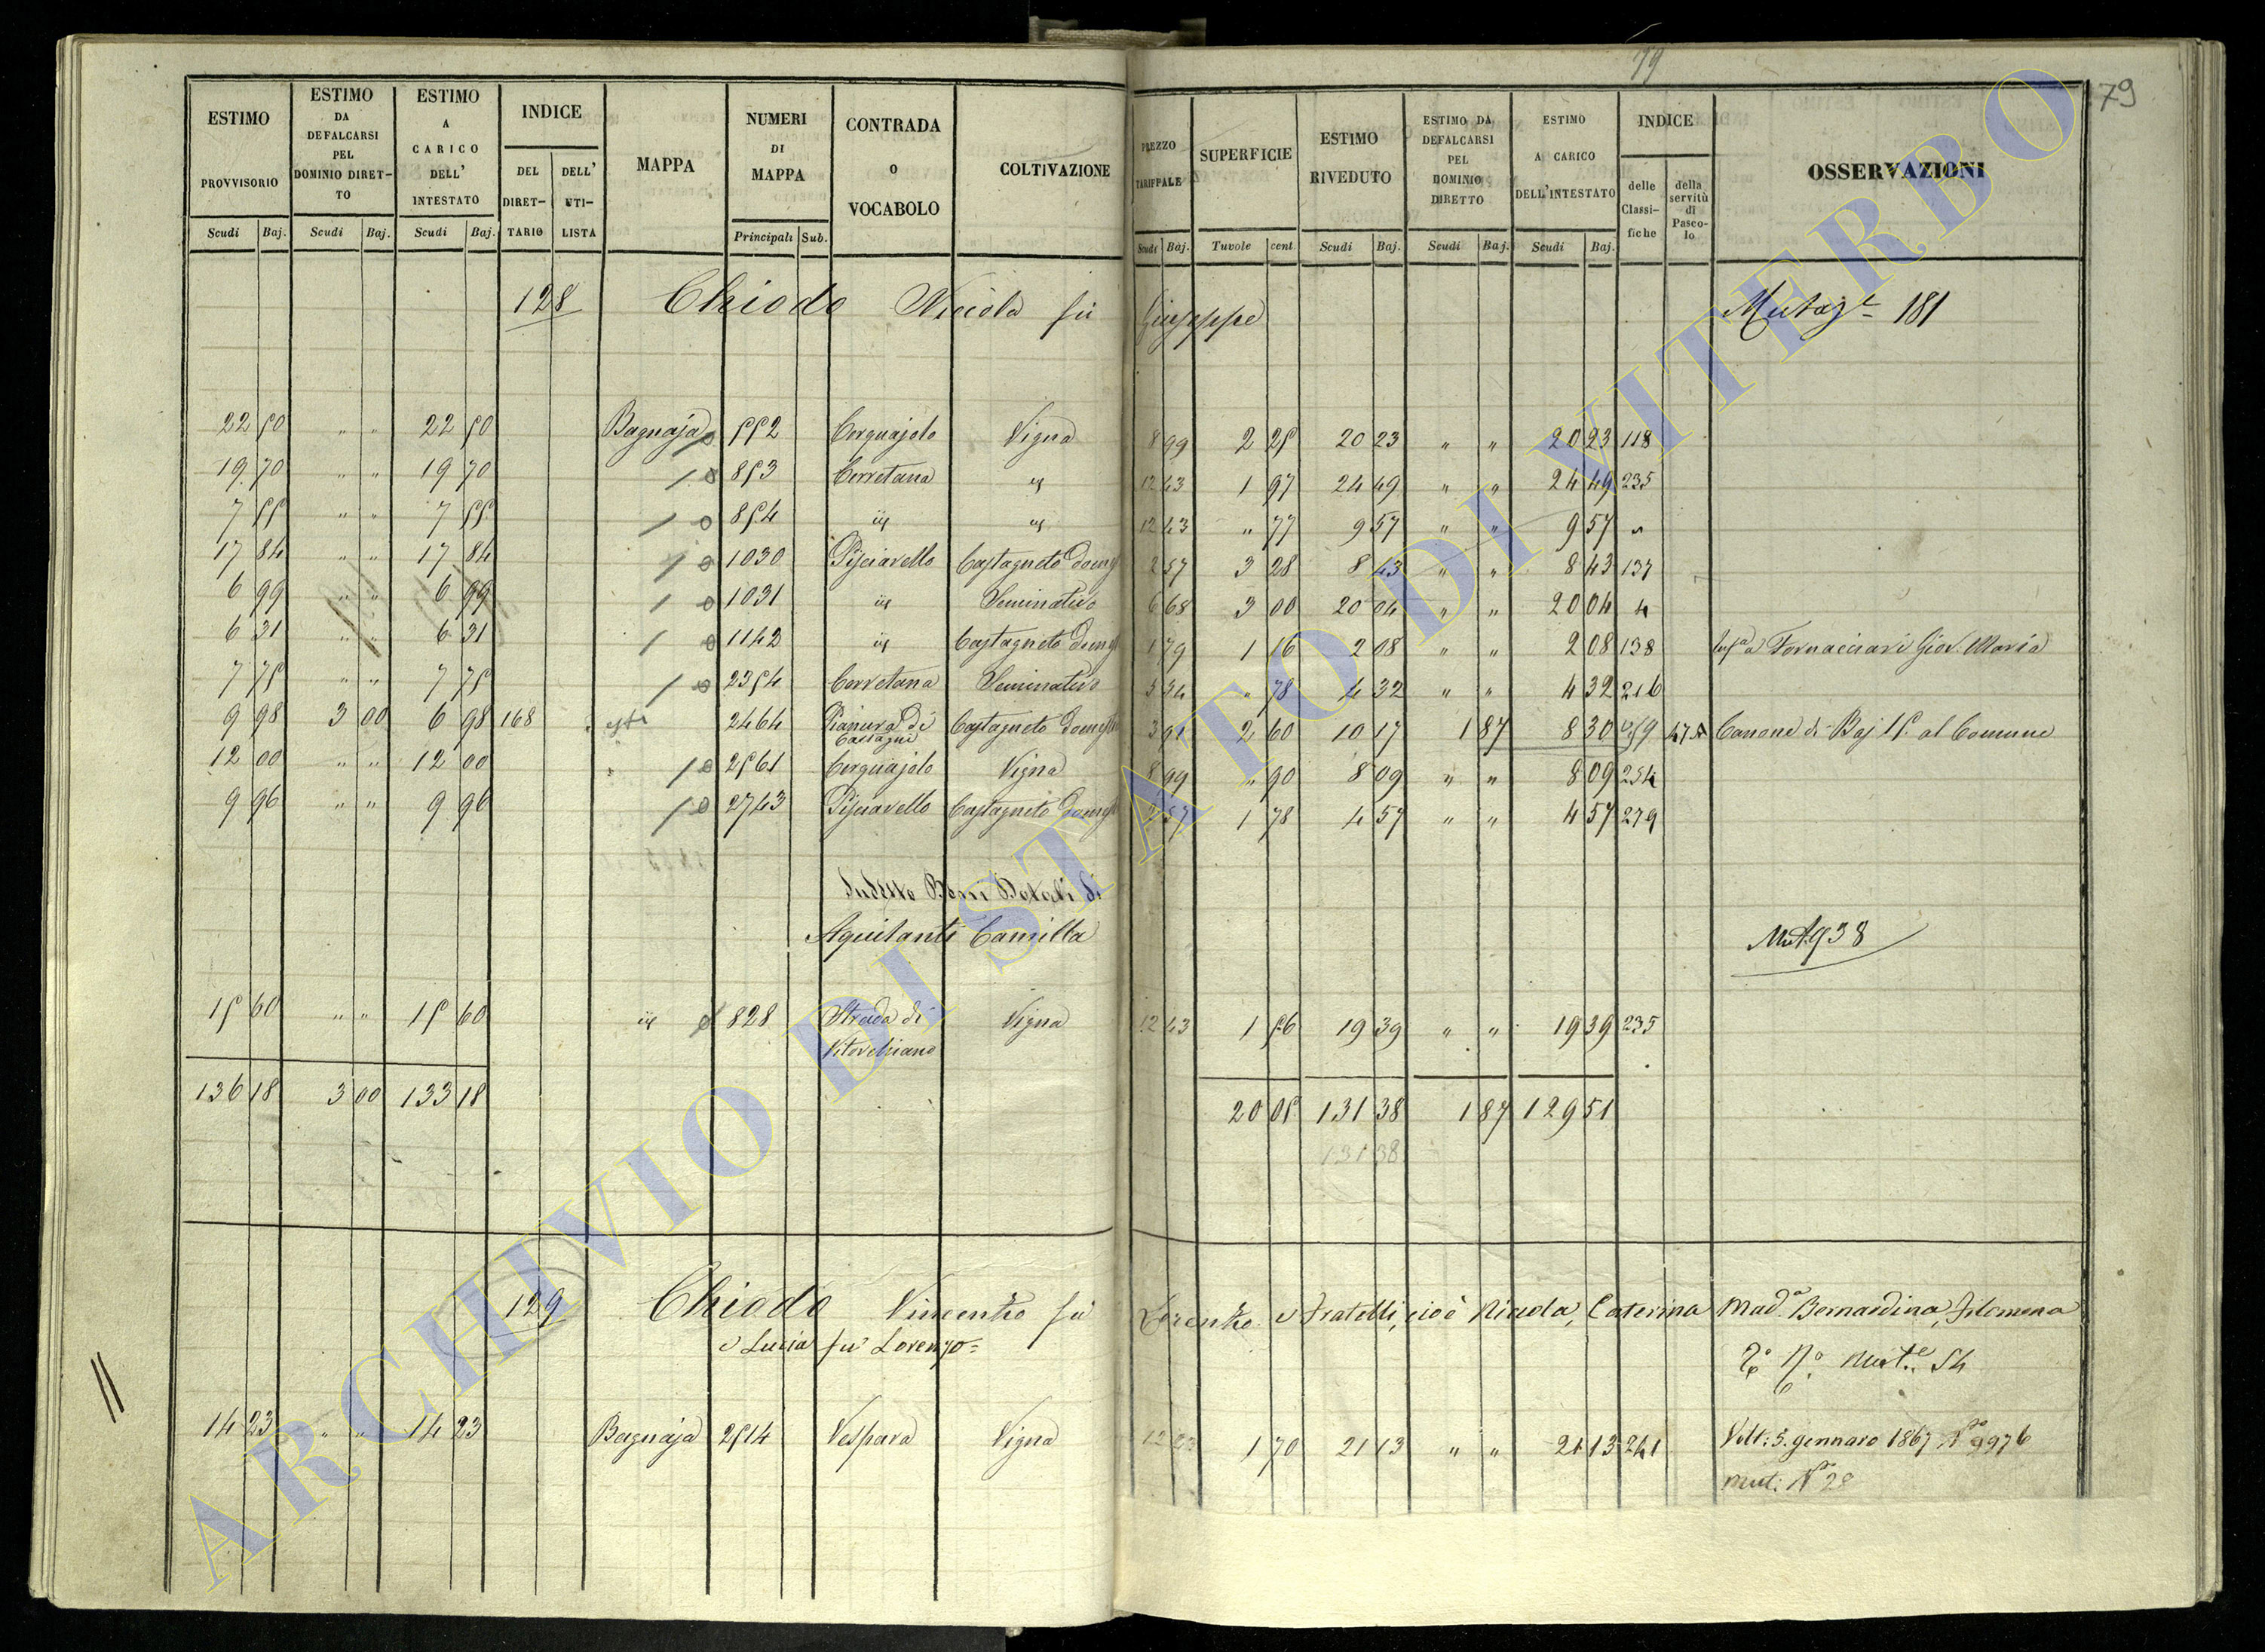 79
79
ESTIMO PROVVISORIO | ESTIMO DA DEFALCARSI PEL DOMINIO DIRET-TO | ESTIMO A CARICO DELL' INTESTATO | INDICE | MAPPA | NUMERI DI MAPPA | CONTRADA O VOCABOLO | COLTIVAZIONE | PREZZO TARIFFALE | SUPERFICIE | ESTIMO RIVEDUTO | ESTIMO DA DEFALCARSI PEL DOMINIO DIRETTO | ESTIMO A CARICO DELL'INTESTATO | INDICE | OSSERVAZIONI
DEL DIRET-TARIO | DELL' UTI-LISTA | delle Classi-fiche | della servitù di Pasco-lo
Scudi | Baj. | Scudi | Baj. | Scudi | Baj. | Principali | Sub. | Scudi | Baj. | Tavole | cent | Scudi | Baj. | Scudi | Baj. | Scudi | Baj.
128 Chiodo Niccola fù Giuseppe Mutaz.e 181
22 50 " " 22 50 Bagnaja 552 Cerquajolo Vigna 8 99 2 25 20 23 " " 20 23 118
19 70 " " 19 70 853 Cerretana " 12 43 1 97 24 49 " " 24 49 235
7 55 " " 7 55 854 " " 12 43 " 77 9 57 " " 9 57 "
17 84 " " 17 84 1030 Pisciarello Castagneto Domes 2 57 3 28 8 43 " " 8 43 137
6 99 " " 6 99 1031 " Seminativo 6 68 3 00 20 04 " " 20 04 4
6 31 " " 6 31 1142 " Castagneto Domes 1 79 1 16 2 08 " " 2 08 138 Fornacciari Giov. Maria
7 75 " " 7 75 2354 Cerretana Seminativo 5 54 " 78 4 32 " " 4 32 216
9 98 3 00 6 98 168 2464 Pianura di Castagno Castagneto Domes 3 91 2 60 10 17 1 87 8 30 Canone di Baj 15 al Comune
12 00 " " 12 00 2561 Cerquajolo Vigna 8 99 " 90 8 09 " " 8 09 254
9 96 " " 9 96 2743 Pisciarello Castagneto Domes 2 57 1 78 4 57 " " 4 57 279
Sudetto Beni Dotali di
Aquilanti Camilla Mut. 938
15 60 " " 15 60 " 828 Strada di Vitorchiano Vigna 12 43 1 56 19 39 " " 19 39 235
136 18 3 00 133 18 20 05 131 38 1 87 129 51
131 38
129 Chiodo Vincenzo fù Lorenzo e Fratelli, cioè Nicola, Caterina Mad.a Bernardina, Filomena
e Lucia fu Lorenzo= Mut.e 54
14 23 " " 14 23 Bagnaja 2514 Vespara Vigna 12 43 1 70 21 13 " " 21 13 241 Volt: 5. gennaro 1867 N.o 9976
Mut: N.o 28
ARCHIVIO DI STATO DI VITERBO